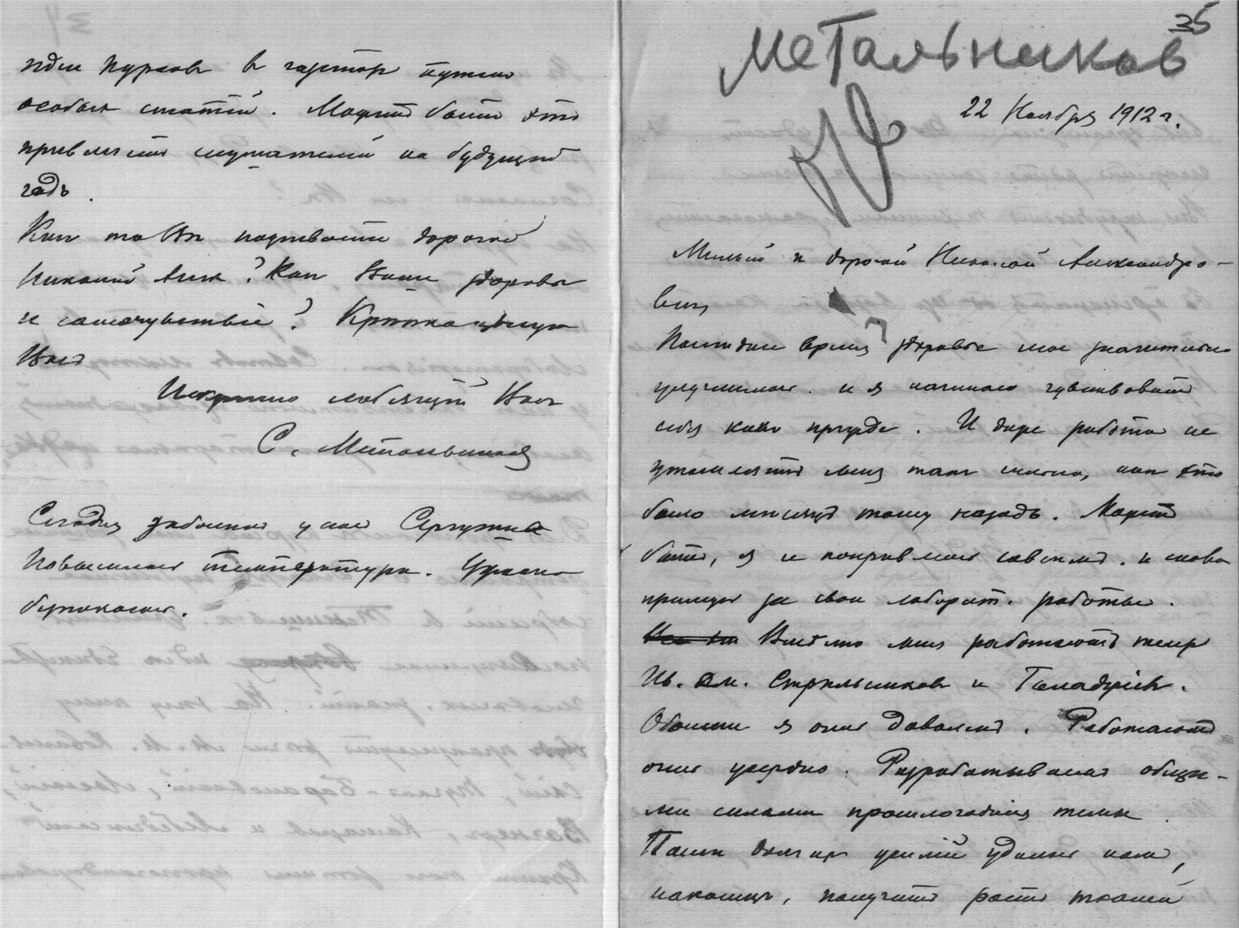 идеи курсов в газетах нужно
особых статей. Может быть это
привлечет слушателей на будущий
годъ.
Как то Вы поживаете дорогой
Николай Алек? Как Ваше здоровье
и самочувствіе? Крѣпко цѣлую
Васъ
Искренно любящий Вас
С. Метальников
Сегодня заболел у нас Сергуня
Повысилась температура. Ужасно
безпокоюсь.
35
Метальников
22 Ноября 1912 г.
Милый и дорогой Николай Александро-
вич
Последнее время здоровье мое значительно
улучшилось и я начинаю чувствовать
себя как прежде. И даже работа не
утомляетъ меня так сильно, как это
было месяцъ тому назадъ. Может
быть, я и поправлюсь совсемъ и снова
примусь за свои лаборат. работы.
Вместо меня работаютъ теперь
Ив. Дм. Стрельников и Галаджіев.
Обоими я очень доволенъ. Работаютъ
очень усердно. Разрабатываем общи-
ми силами прошлогоднія темы.
После долгих усилій удалось нам,
наконецъ, получить рост тканей